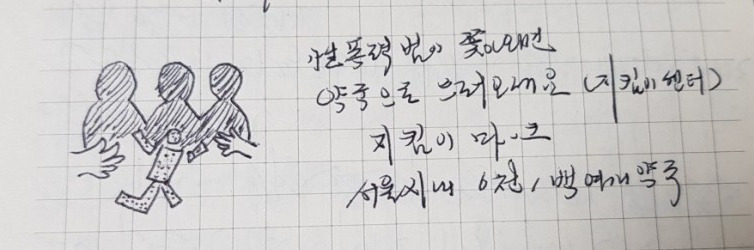 성폭력범이 쫓아오면
약국으로 오래요 (지킴이 센터)
지킴이 마크
서울시내 6천, 백여개 약국